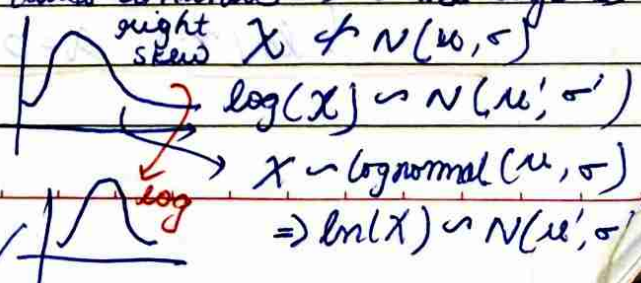 right
skew X ≁ N(μ,σ)
log(X) ~ N(μ',σ')
X ~ lognormal(μ,σ)
log
=> ln(X) ~ N(μ',σ'